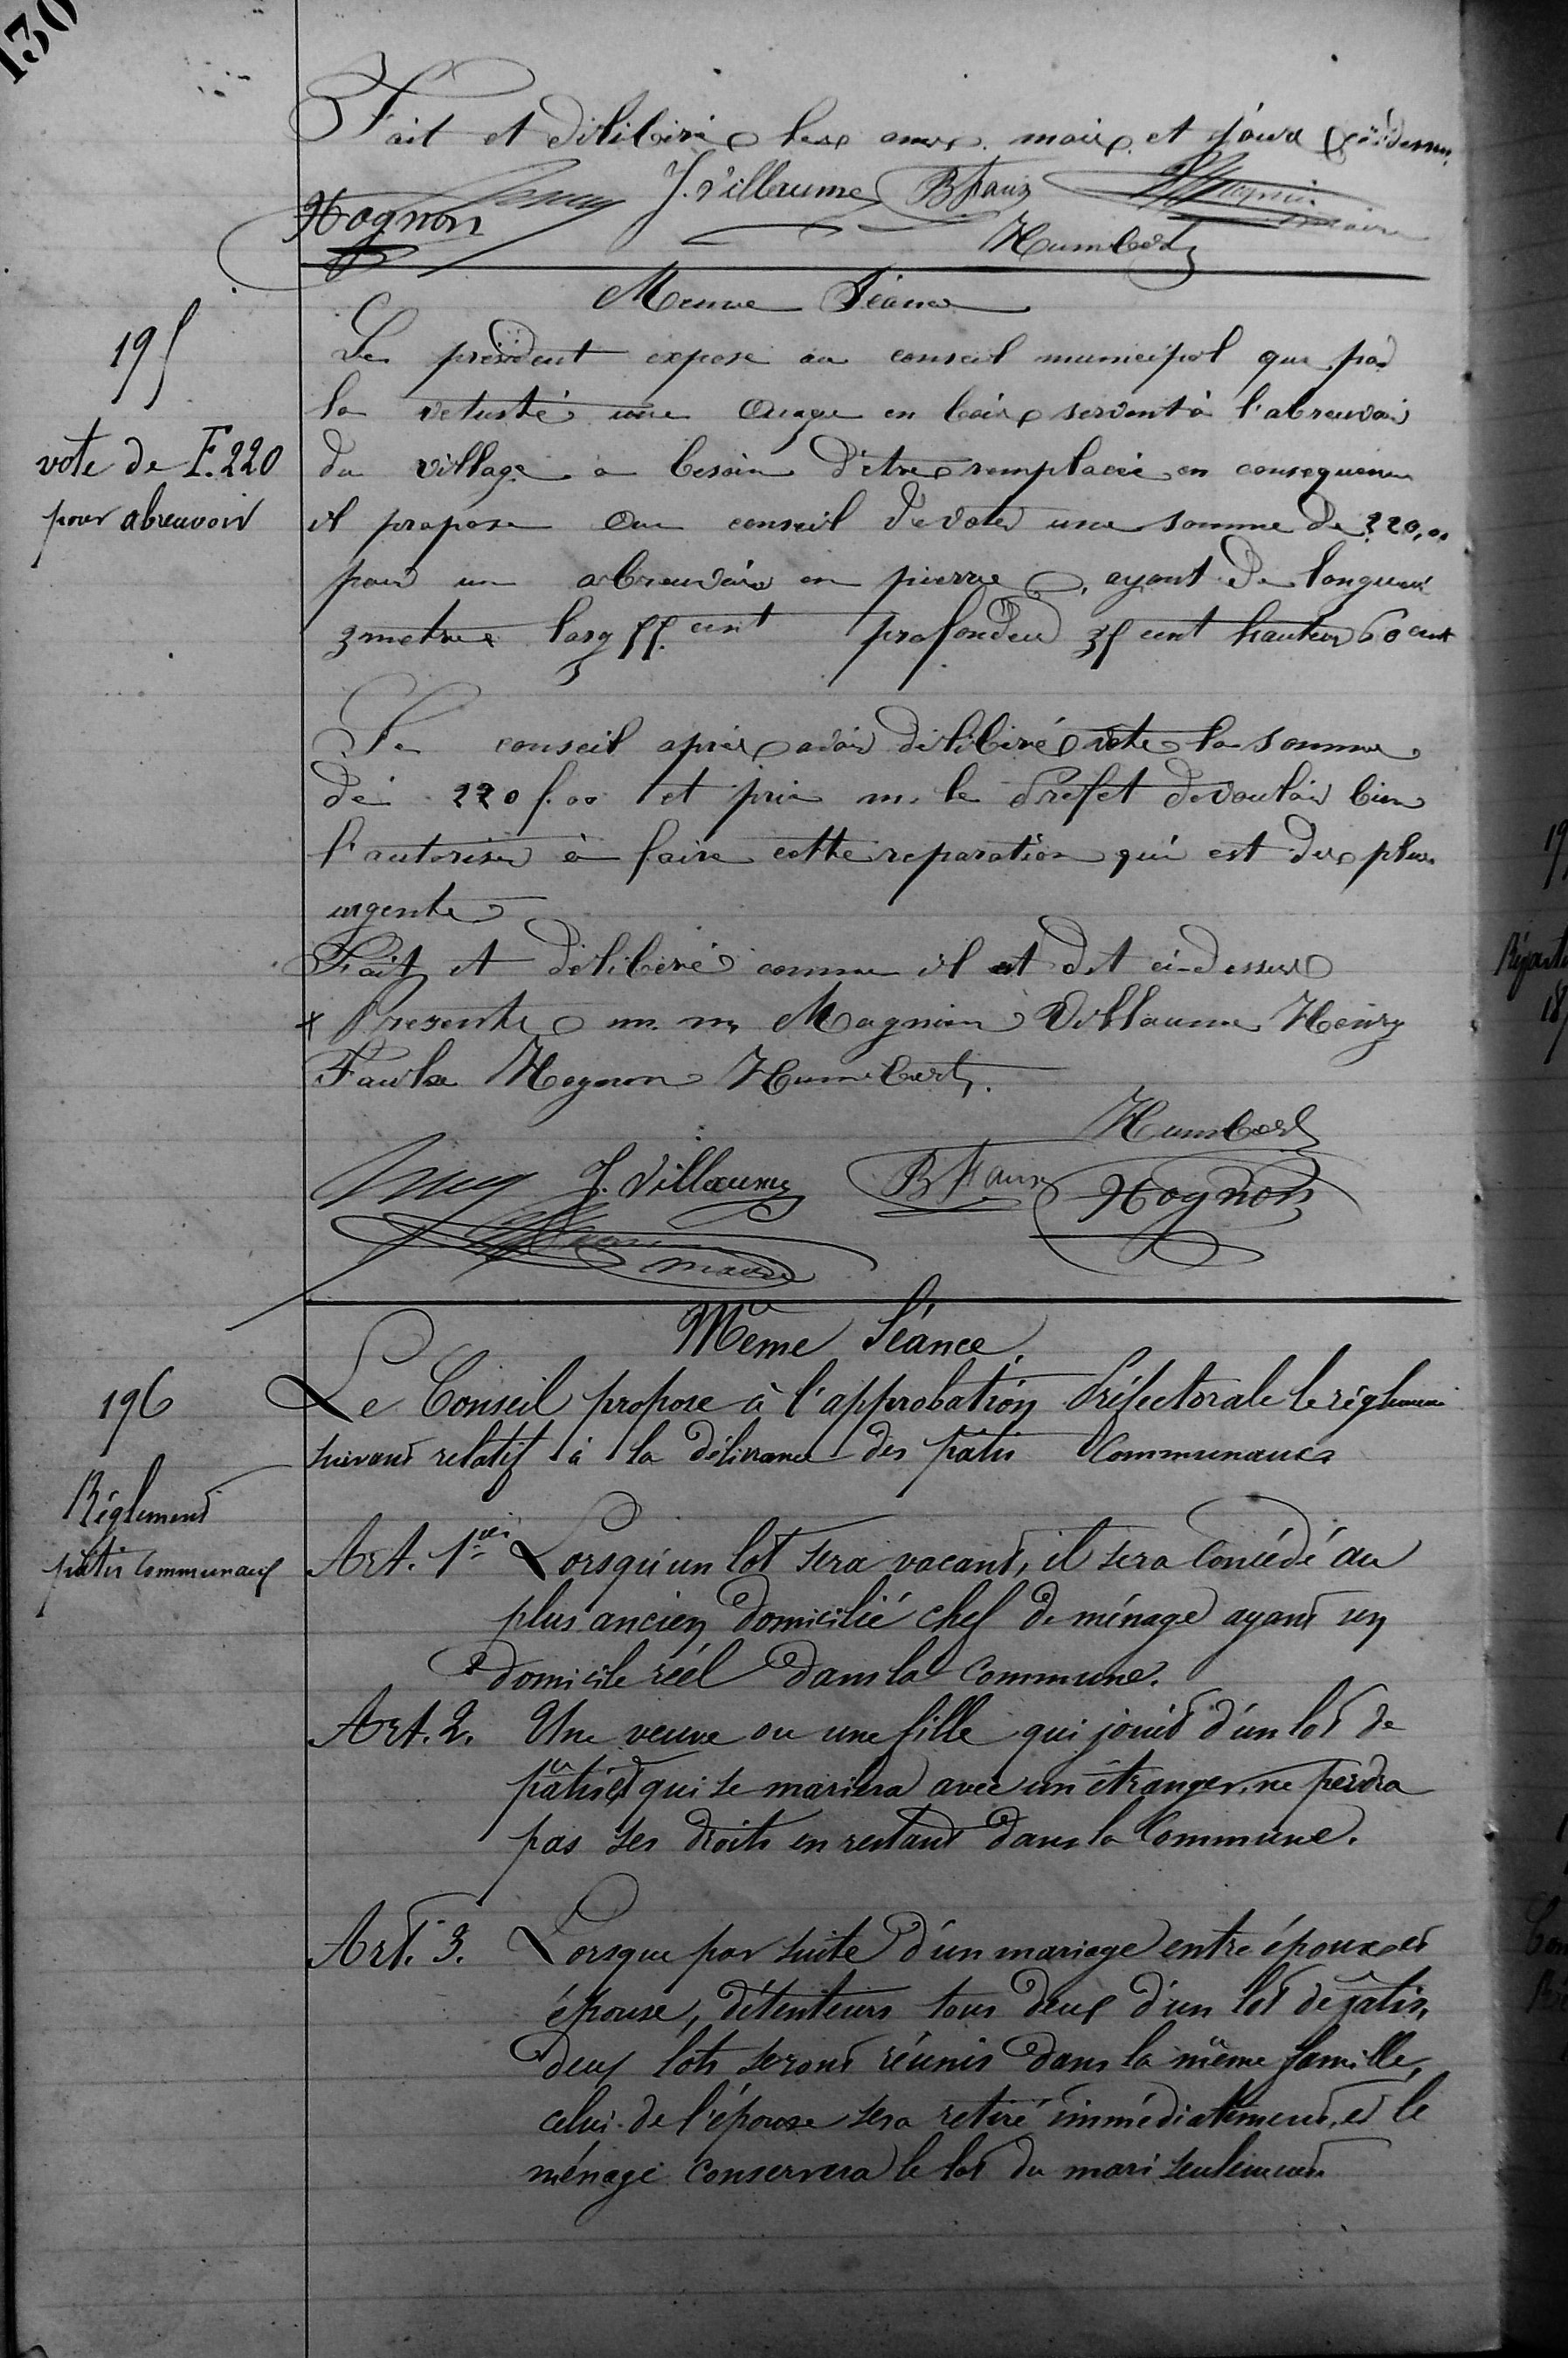 130
Fait et délibéré les ans, mois et jours ci-dessus
J. Villaume B Faux
Hognon maire
Humbert
Meme Séance
195
vote de F. 220
pour abreuvoir
Le président expose au conseil municipal que par
la vetusté une auge en bois servent à l'abreuvoir
du village a besoin d'etre remplacée en consequence
il propose au conseil de voter une somme de 220,00
pour un abreuvoir en pierre, ayant de longueur
3 metres larg 55 cent profondeur 35 cent hauteur 60 cent
Le conseil après avoir délibéré vote la somme
de 220 f. 00 et prie m. le Préfet de vouloir bien
l'autoriser à faire cette reparation qui est des plus
urgente
Fait et délibéré comme il est dit ci-dessus
+ Presents m. m. Magnien Villaume Henry
Faulx Hognon Humbert.
Humbert
J. Villaume B Faux Hognon
maire
Même Séance.
196
Réglement
pâtis communaux
Le Conseil propose à l'approbation Préfectorale le réglement
suivant relatif à la délivrance des pâtis Communaux
Art. 1er Lorsqu'un lot sera vacant, il sera concédé au
plus ancien domicilié chef de ménage ayant un
domicile réel dans la commune.
Art. 2. Une veuve ou une fille qui jouit d'un lot de
pâtis et qui se mariera avec un étranger, ne perdra
pas ses droits en restant dans la Commune.
Art. 3. Lorsque par suite d'un mariage entre époux et
épouse, détenteurs tous deux d'un lot de pâtis,
deux lots seront réunis dans la même famille,
celui de l'épouse sera retiré immédiatement, et le
ménage conservera le lot du mari seulement